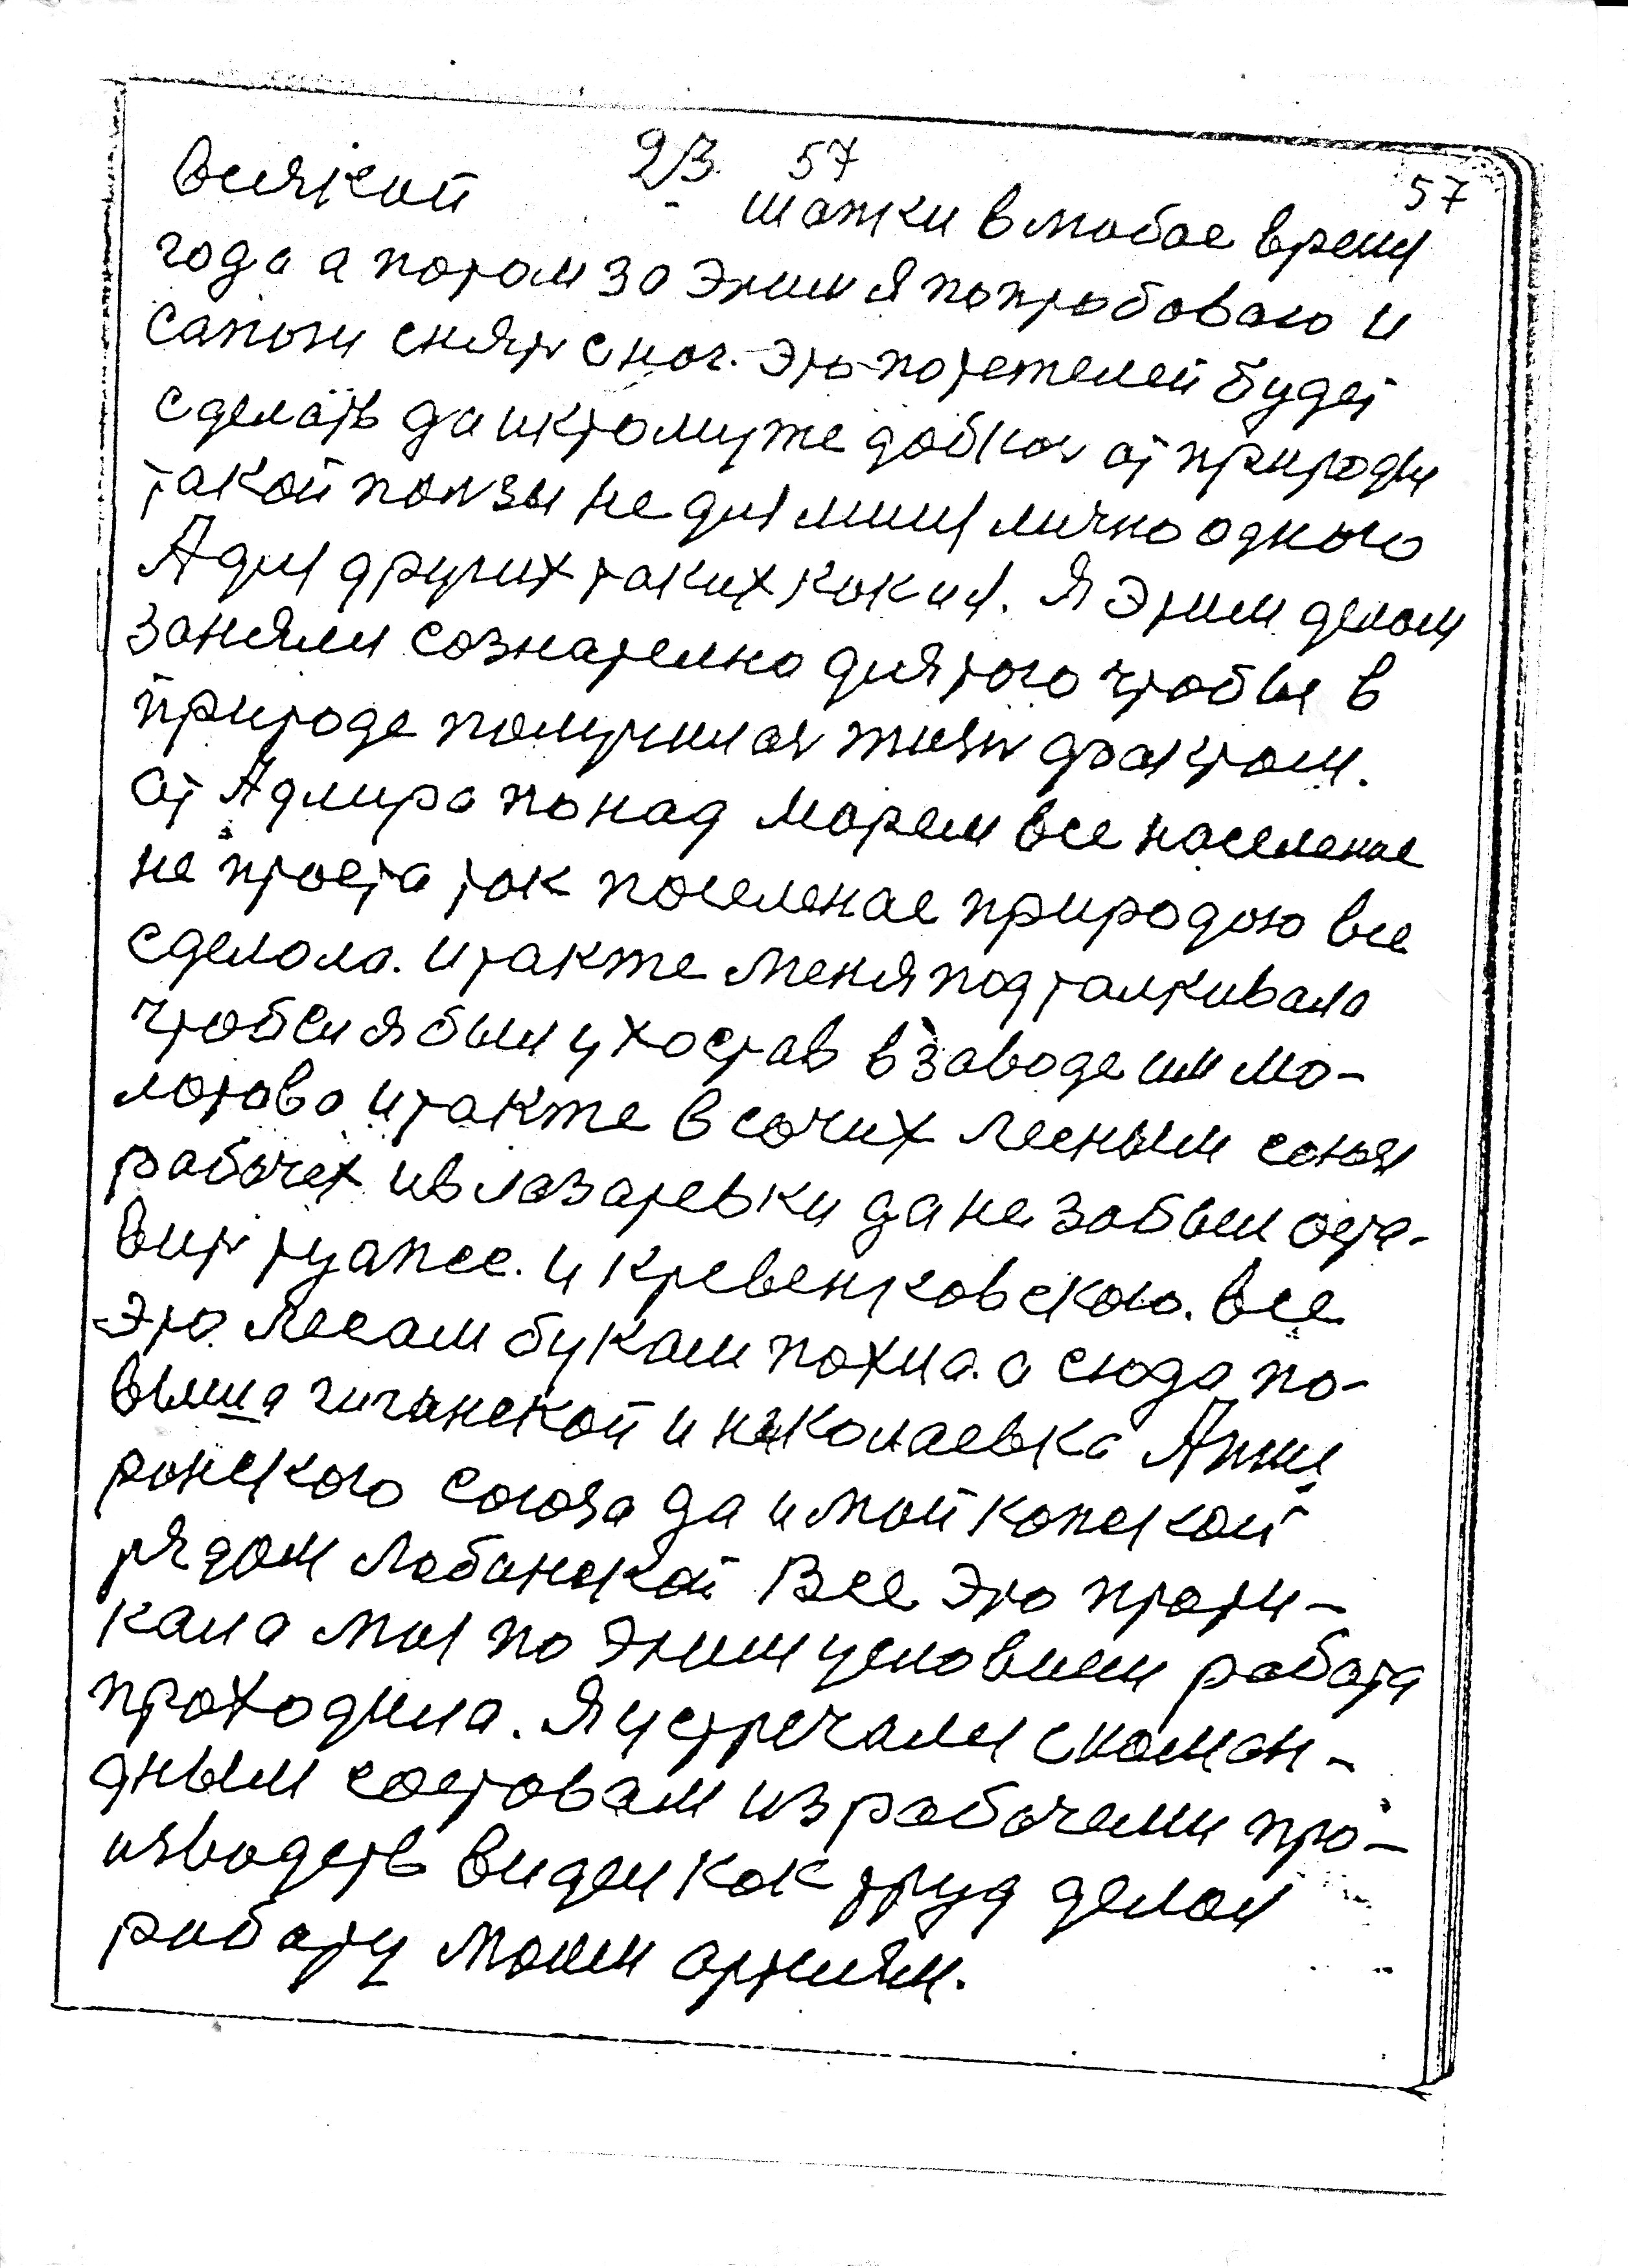 23. 57
57
всякой шапки в любое время
года а потом за этим я попробоваю и
сапоги снять с ног. Это потежелей будет
сделать да и ктому же добися от природы
такой ползы не для мина лично одного
А для других таких как и я. Я этим делом
занялся сознателно для того чтобы в
природе получилася жизн фактом.
от Адлира по над морем все население
не проста так поселенае природою все
сделала. и также меня подталкивала
чтобы я был ухостав в заводе им мо-
лотова и также в сочих лесным союзя
рабочех и в лазаревки да не забыл оста-
вит туапсе. и кревенковского. все
это лесам букам пахла. а сюда по-
выша гиганской и николаевка Апше
ронского союза да и майкопской
рядом лабинской Все это прати-
кала мыя по этим условием работа
праходила. Я устречался с коман-
дным составам из рабочеми про-
изводств видел как труд делал
работу маим артиям.